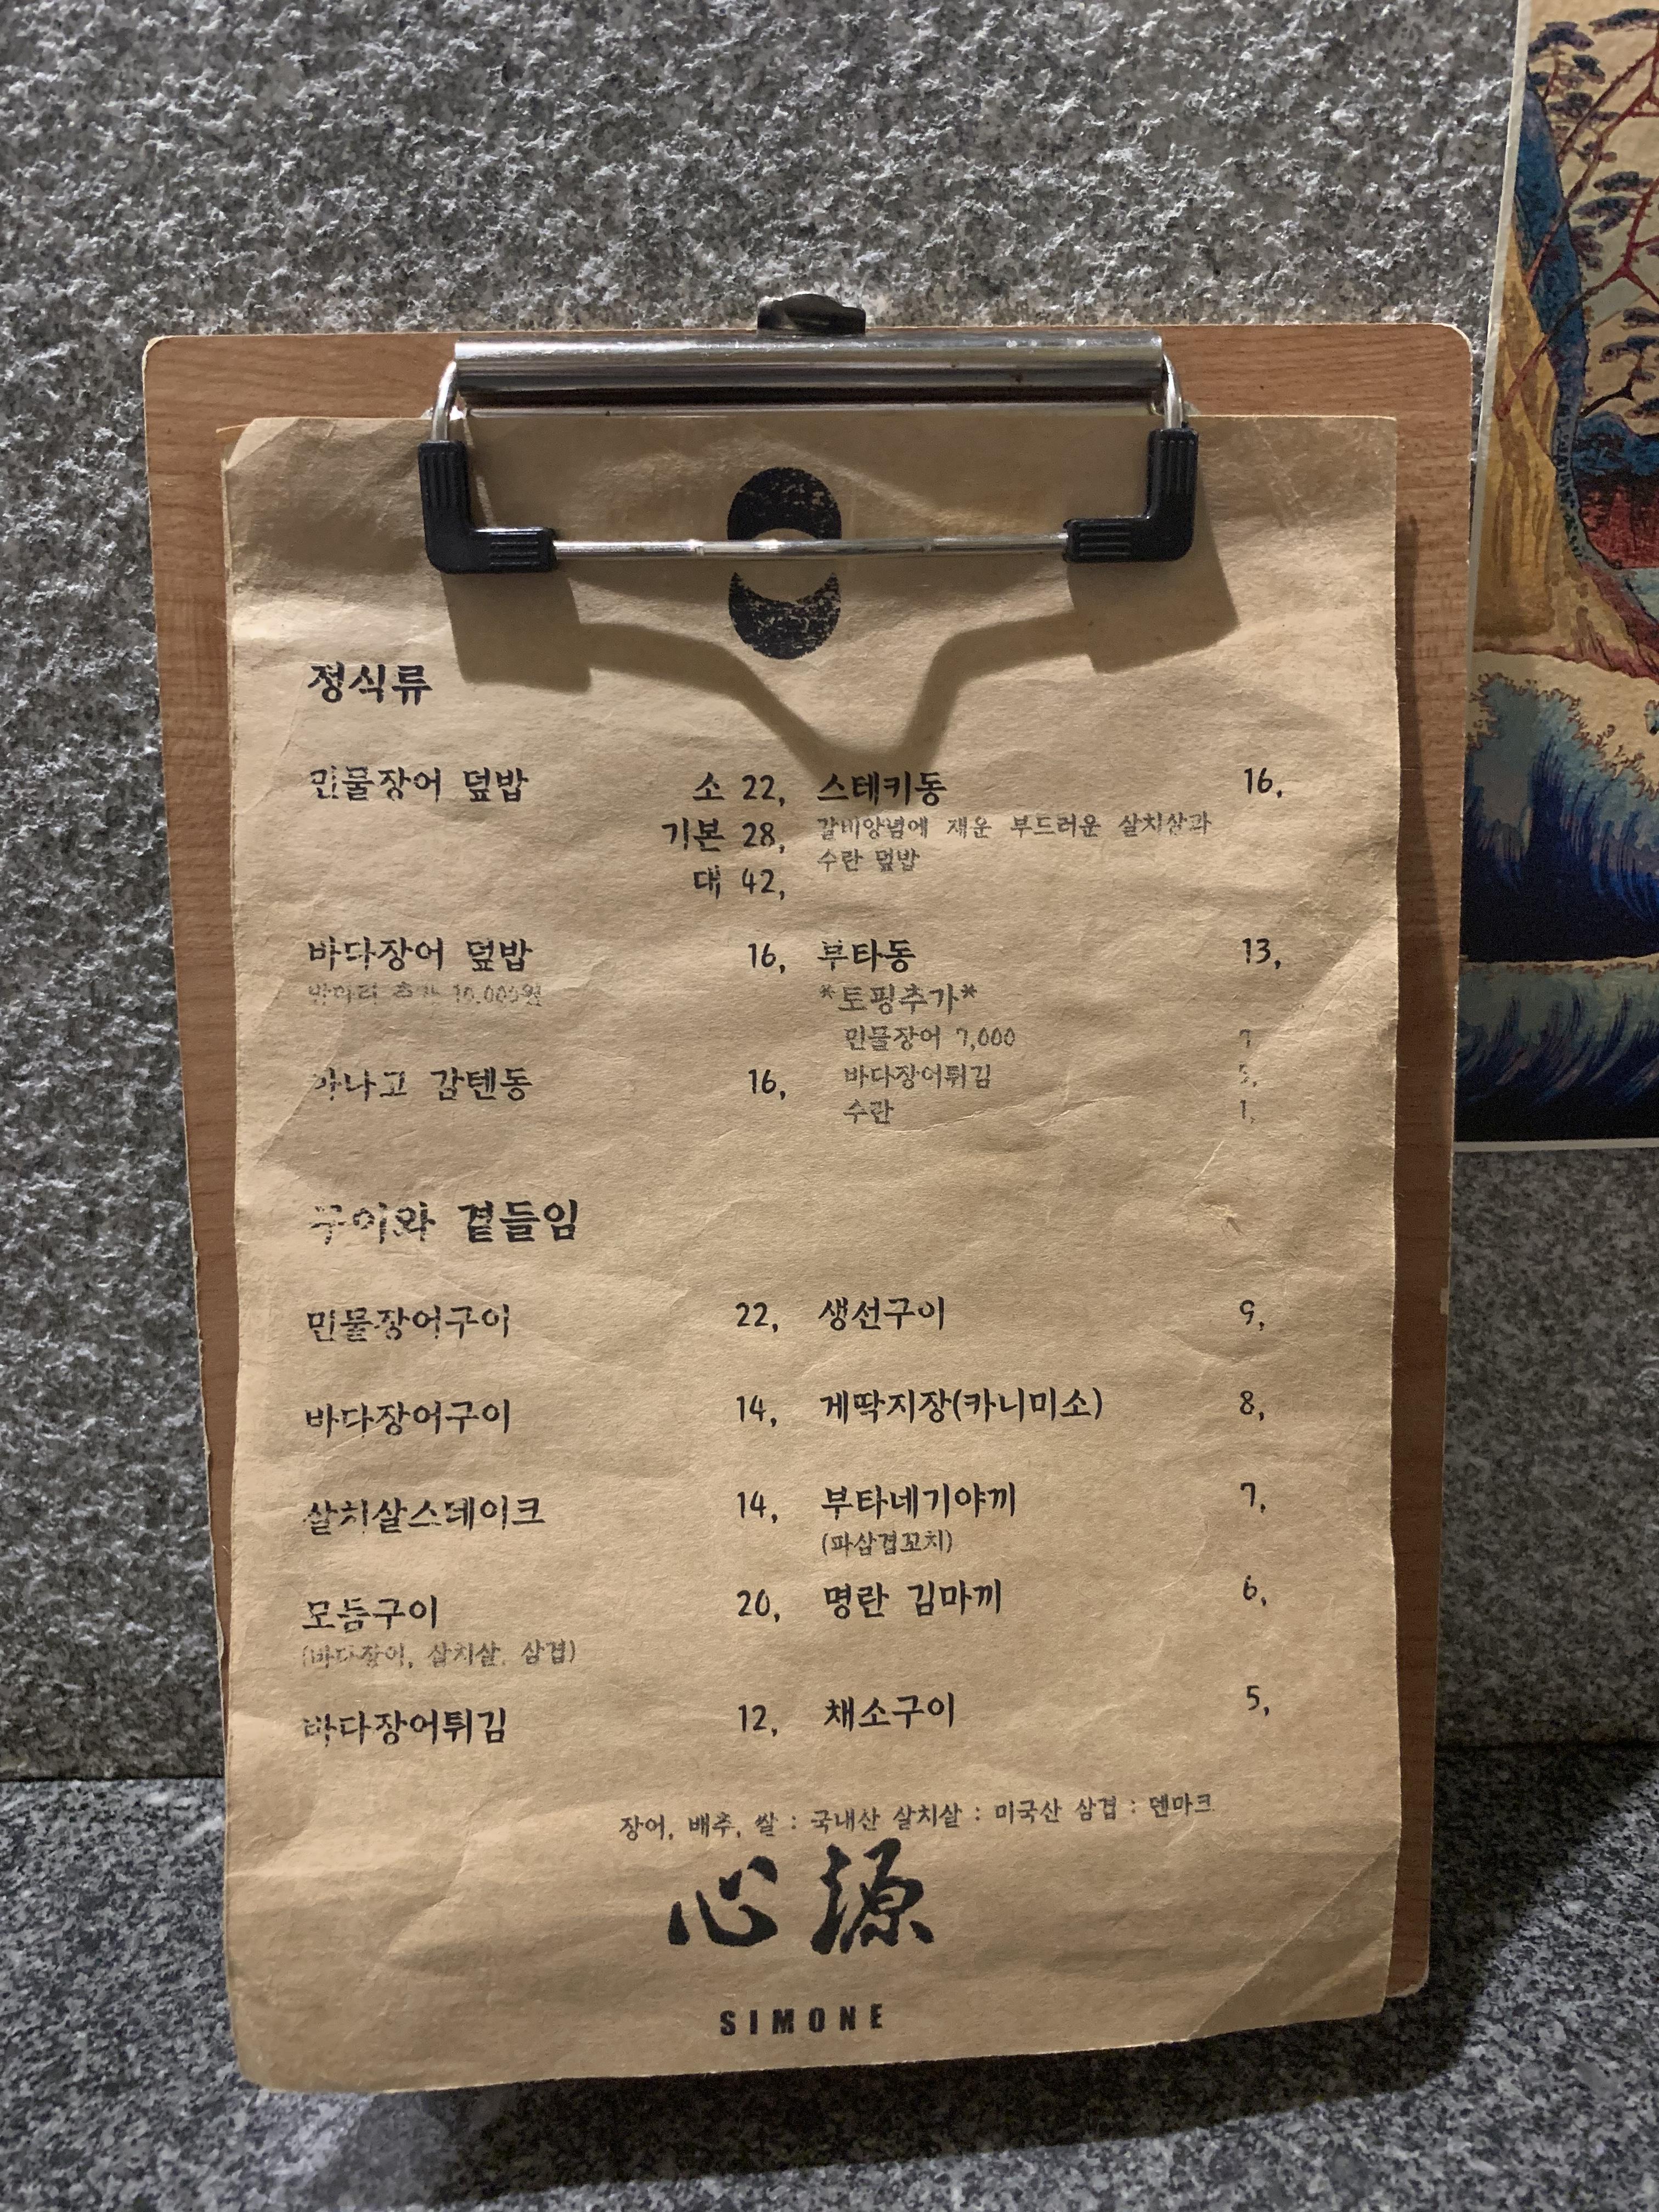 정식류
민물장어 덮밥 소 22,
기본 28,
대 42,
바다장어 덮밥 16,
반마리 추가 10,000원
아나고 감텐동 16,
스테키동 16,
갈비양념에 재운 부드러운 살치살과
수란 덮밥
부타동 13,
*토핑추가*
민물장어 7,000 7
바다장어튀김 5,
수란 1,
구이와 곁들임
민물장어구이 22,
바다장어구이 14,
살치살스테이크 14,
모듬구이 20,
(바다장어, 살치살, 삼겹)
바다장어튀김 12,
생선구이 9,
게딱지장(카니미소) 8,
부타네기야끼 7,
(파삼겹꼬치)
명란 김마끼 6,
채소구이 5,
장어, 배추, 쌀 : 국내산 살치살 : 미국산 삼겹 : 덴마크
心源
SIMONE